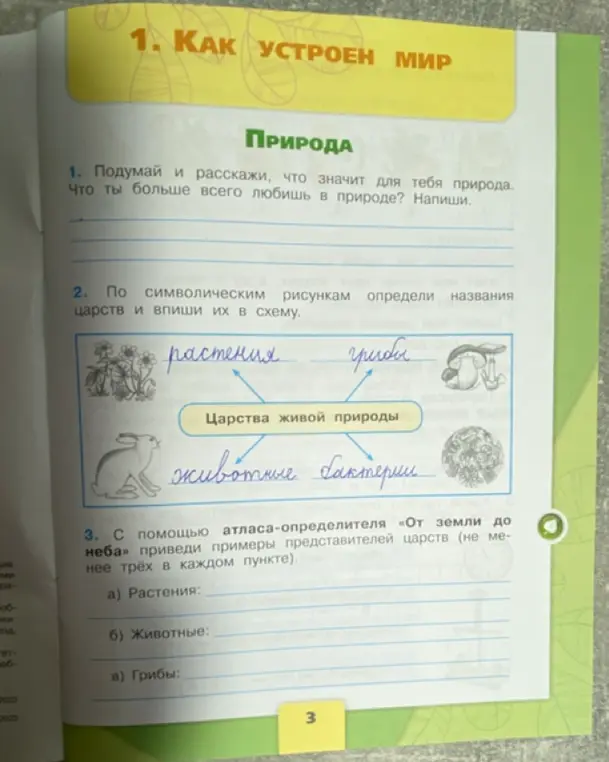 1. Как устроен мир
Природа
1. Подумай и расскажи, что значит для тебя природа.
Что ты больше всего любишь в природе? Напиши.
2. По символическим рисункам определи названия
царств и впиши их в схему.
растения грибы
Царства живой природы
животные бактерии
3. С помощью атласа-определителя «От земли до
неба» приведи примеры представителей царств (не ме-
нее трёх в каждом пункте).
а) Растения:
б) Животные:
в) Грибы:
3